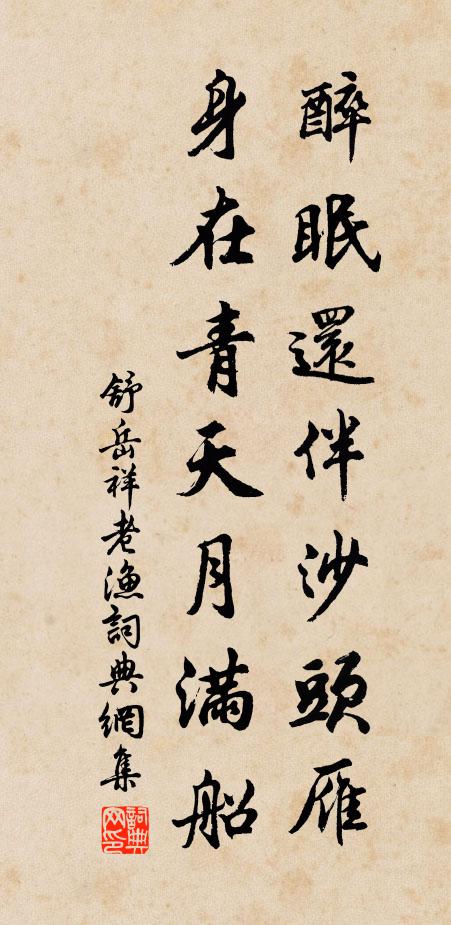 醉眠還伴沙頭雁
身在青天月滿船
舒岳祥老漁詞典網集
詞典网印